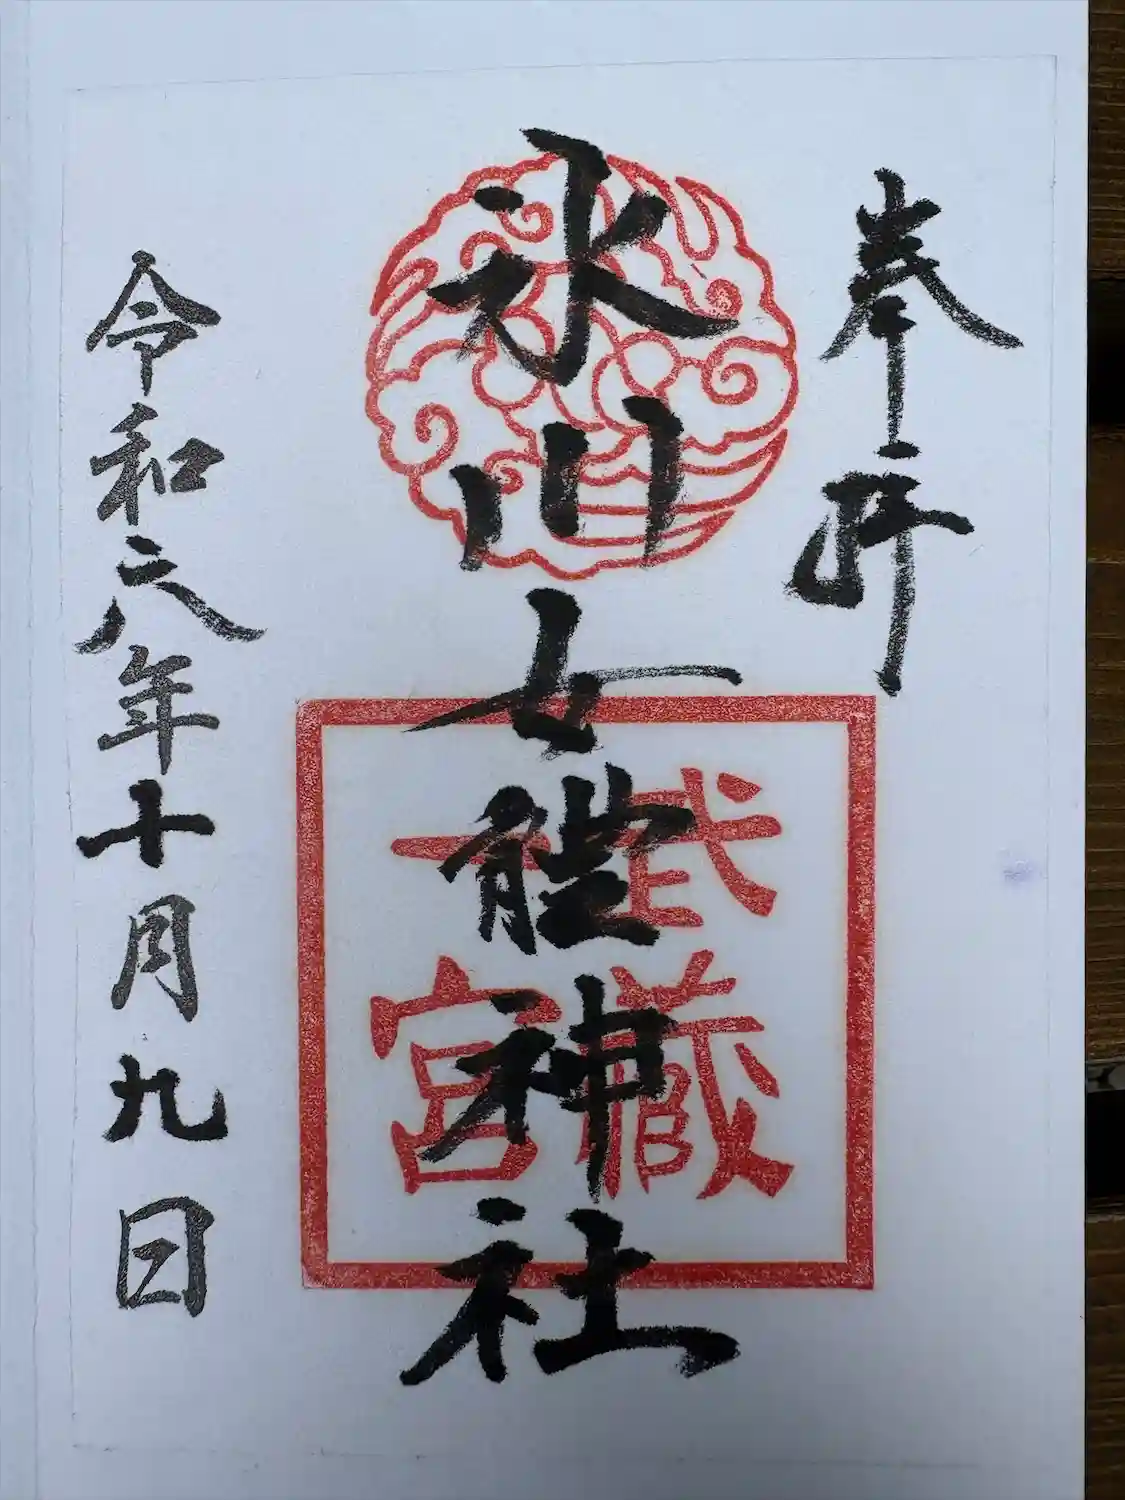 奉拝
氷川女體神社
武蔵
一宮
令和六年十月九日